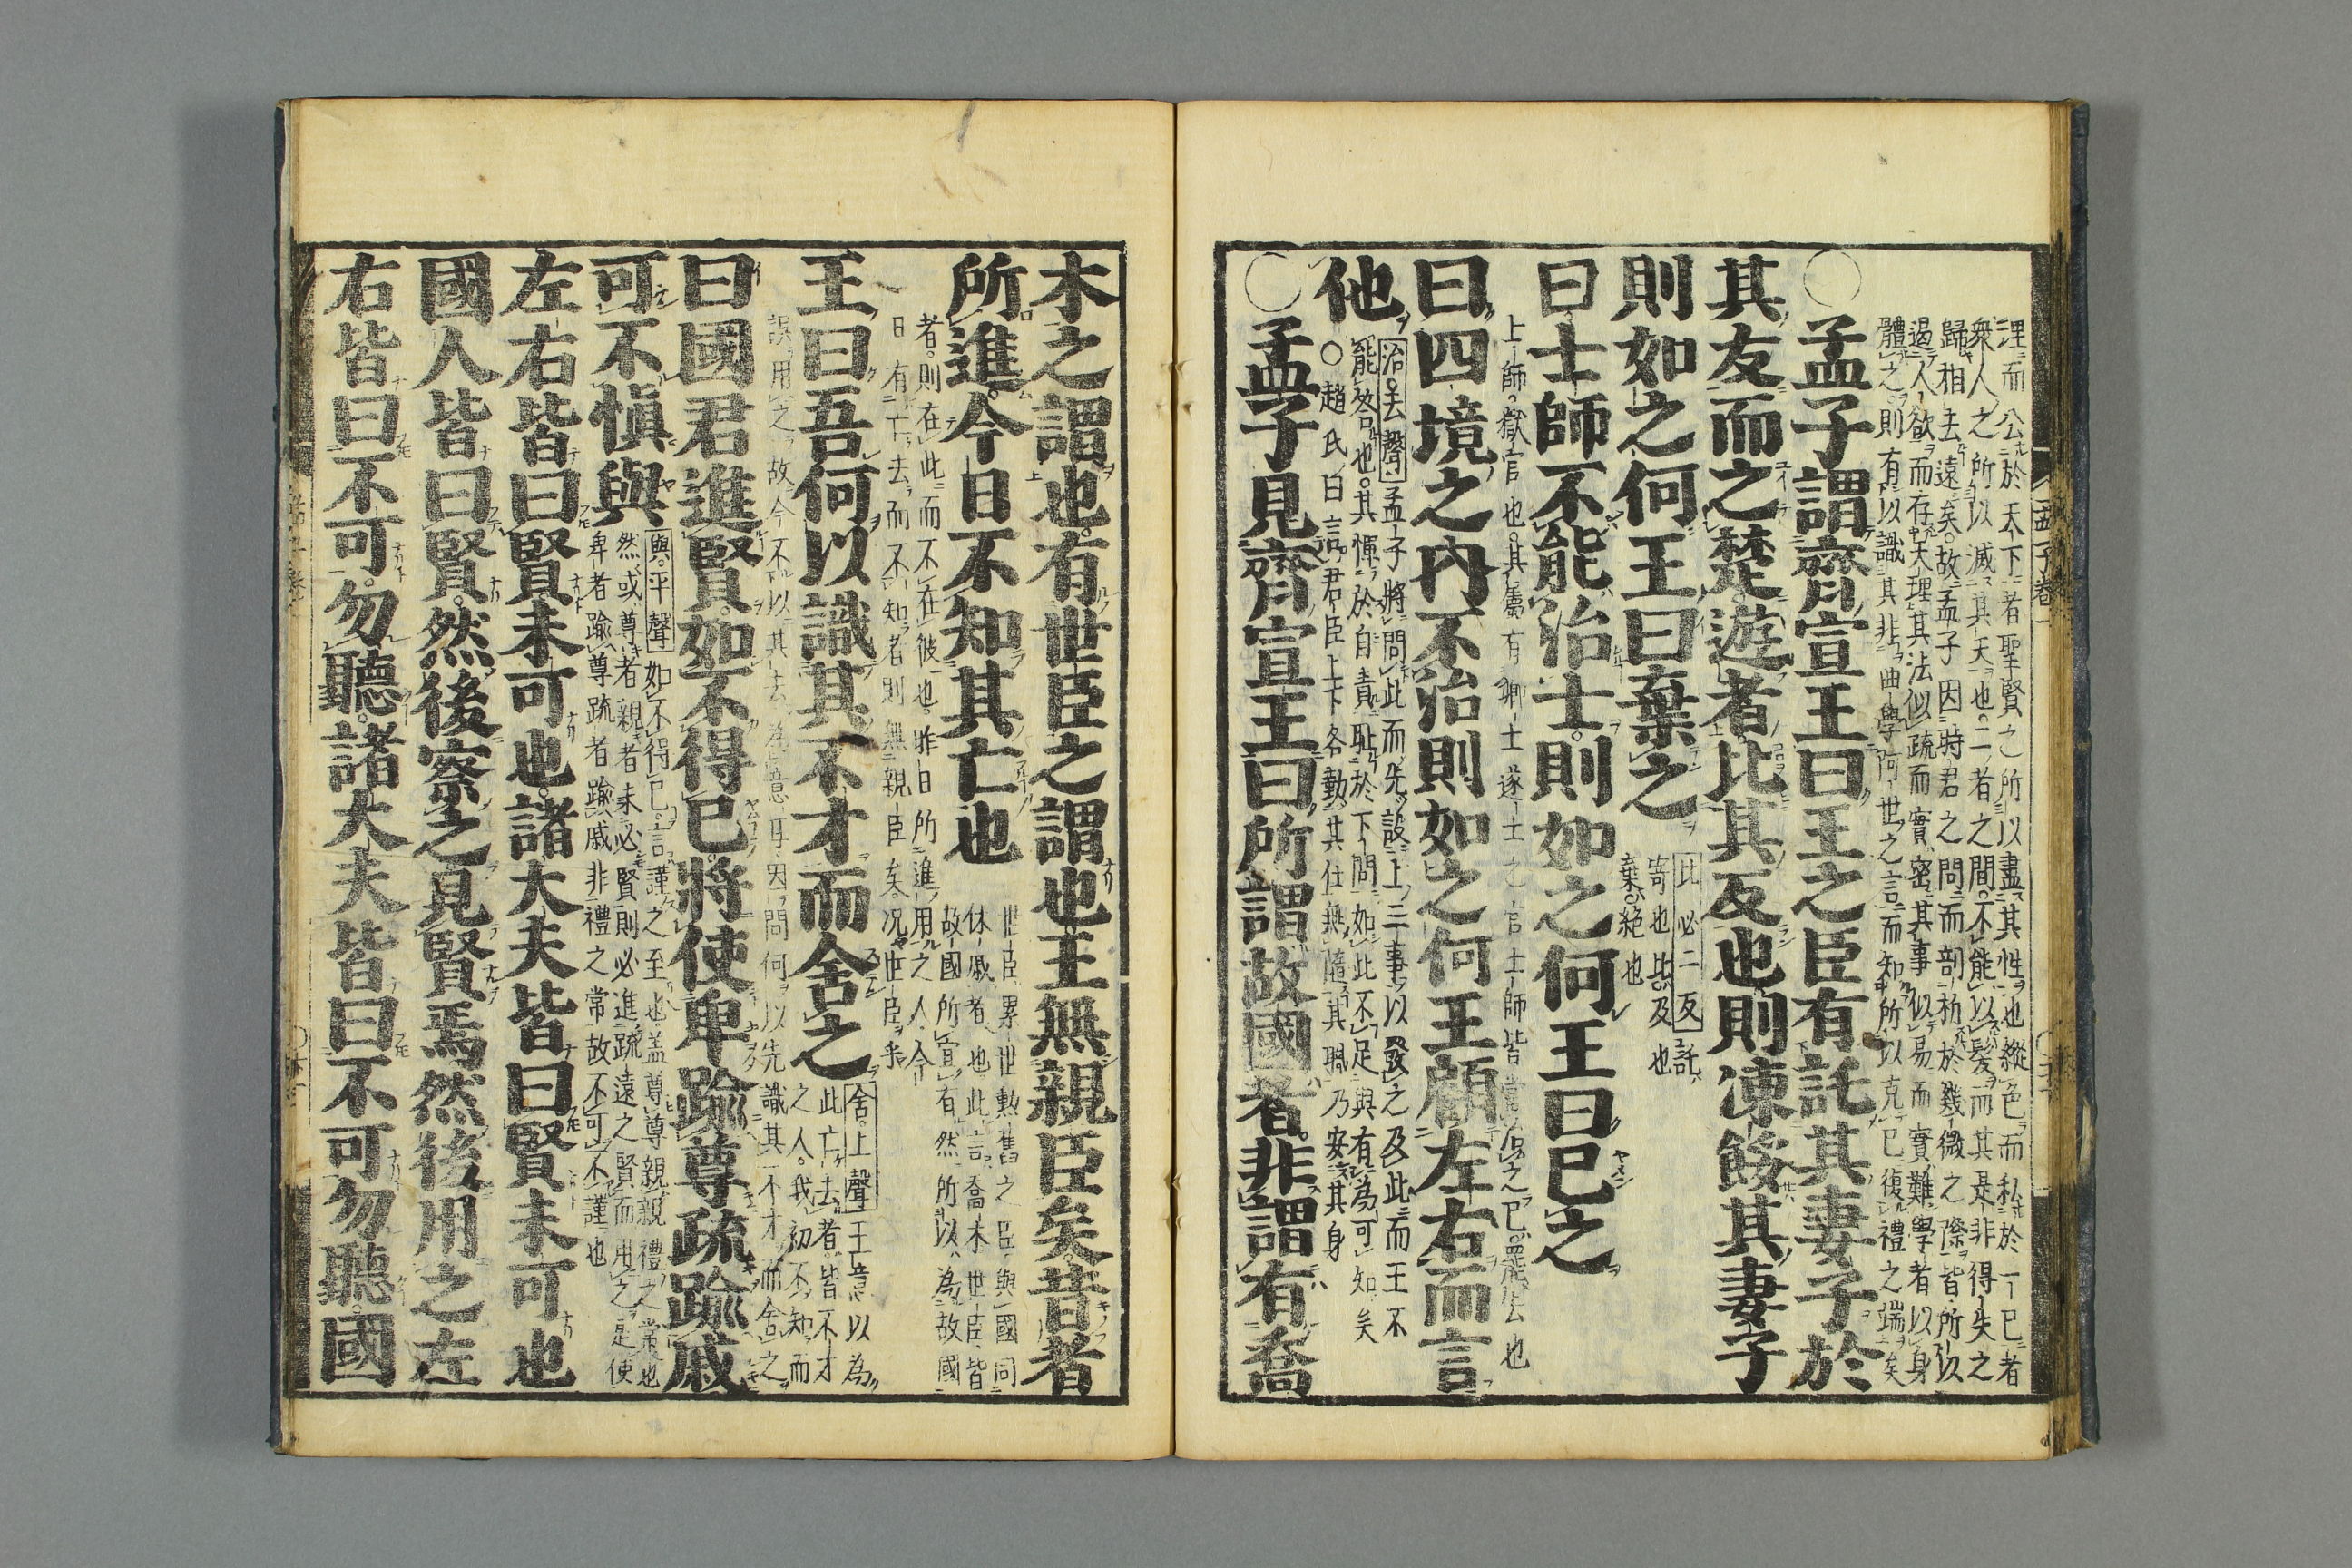 理而公於天下者聖賢之所以盡其性也縱色而私於一己者
衆人之所以滅其天也二者之間不能以髮而其是非得失之
歸相去遠矣故孟子因時君之問而剖析於幾微之際皆所以
遏人欲而存天理其法似疏而實密其事似易而實難學者以身
體之則有以識其非曲學阿世之言而知所以克己復禮之端矣
○孟子謂齊宣王曰王之臣有託其妻子於
其友而之楚遊者比其反也則凍餒其妻子
則如之何王曰棄之
此必二反託
寄也比及也
棄絶也
曰士師不能治士則如之何王曰已之
上師獄官也其屬有鄉士遂士之官士師皆當治之已罷去也
曰四境之内不治則如之何王顧左右而言
他
治去聲孟子將問此而先設上二事以發之及此而王不
能答也其憚於自責恥於下問如此不足與有為可知矣
○趙氏曰言君臣上下各勤其任無隳其職乃安其身
○孟子見齊宣王曰所謂故國者非謂有喬
孟子卷一
木之謂也有世臣之謂也王無親臣矣昔者
所進今日不知其亡也
世臣累世勲舊之臣與國同
休戚者也此言喬木世臣皆
故國所宜有然所以為故國
者則在此而不在彼也昨日所進用之人今
日有亡去而不知者則無親臣矣况世臣乎
王曰吾何以識其不才而舍之
舍上聲王意以為
此亡去者皆不才
之人我初不知而
誤用之故今不以其去為意耳因問何以先識其不才而舍之
曰國君進賢如不得已將使卑踰尊疏踰戚
可不愼與
與平聲如不得已言謹之至也蓋尊尊親親禮之常也
然或尊者親者未必賢則必進疏遠之賢而用之是使
卑者踰尊疏者踰戚非禮之常故不可不謹也
左右皆曰賢未可也諸大夫皆曰賢未可也
國人皆曰賢然後察之見賢焉然後用之左
右皆曰不可勿聽諸大夫皆曰不可勿聽國